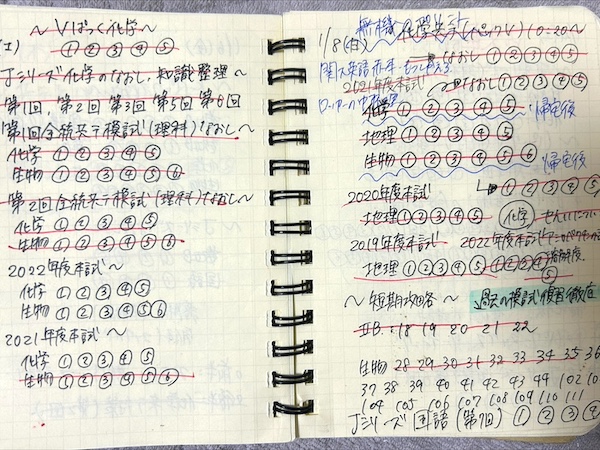 ～Vぱっく化学～
① ② ③ ④ ⑤
Jシリーズ化学のなおし、知識整理～
第1回、第2回 第3回 第5回 第6回
第1回全統共テ模試(理科)なおし～
化学 ① ② ③ ④ ⑤
生物 ① ② ③ ④ ⑤ ⑥
第2回全統共テ模試(理科)なおし～
化学 ① ② ③ ④ ⑤
生物 ① ② ③ ④ ⑤ ⑥
2022年度本試～
化学 ① ② ③ ④ ⑤
生物 ① ② ③ ④ ⑤ ⑥
2021年度本試～
化学 ① ② ③ ④ ⑤
生物 ① ② ③ ④ ⑤ ⑥
無機
1/8(日) 化学共テ(パックV) 10:20～
なおし ① ② ③ ④ ⑤
2021年度本試
なおし ① ② ③ ④ ⑤
化学 ① ② ③ ④ ⑤ 帰宅後
地理 ① ② ③ ④ ⑤
生物 ① ② ③ ④ ⑤ ⑥ 帰宅後
2020年度本試 ① ② ③ ④ ⑤
地理 ① ② ③ ④ ⑤ 化学
2019年度本試 2022年度本試
地理 ① ② ③ ④ ⑤ ① ② ③ ④
⑤
～短期攻略～ 過去の模試復習徹底
ⅡB:18 19 20 21 22
生物 28 29 30 31 32 33 34 35 36
37 38 39 40 41 42 43 44 102 103
104 105 106 107 108 109 110 111
Jシリーズ 国語(第7回) ① ② ③ ④